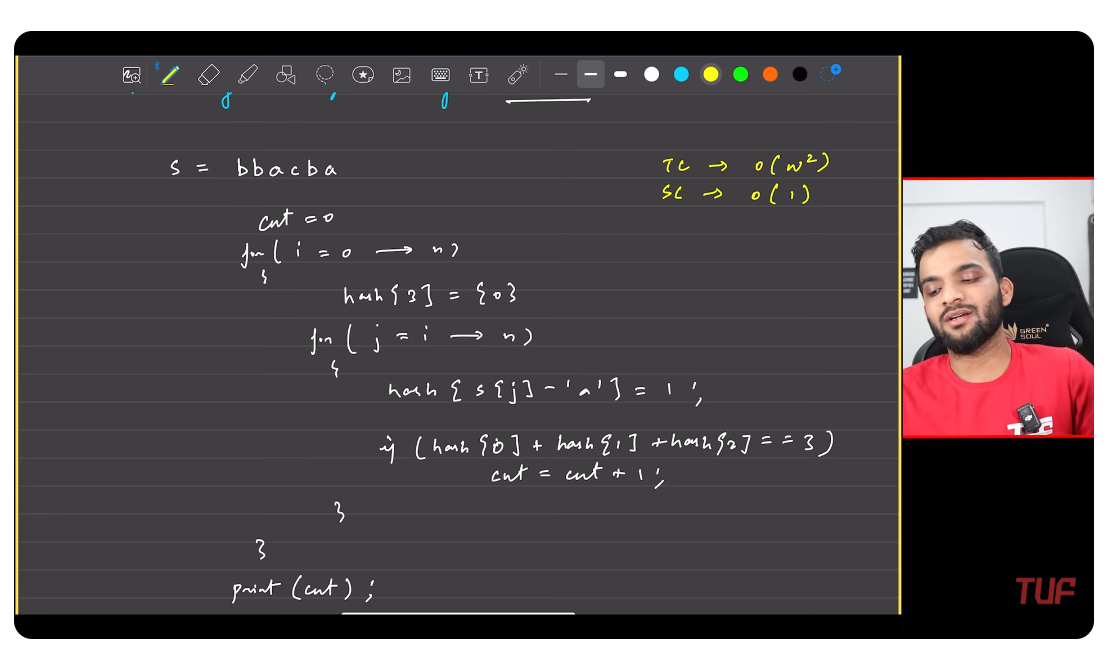 s = bbacba
TC → O(N²)
SC → O(1)
cnt = 0
for( i = 0 → n)
{
hash[3] = {0}
for( j = i → n)
{
hash[s[j] - 'a'] = 1;
if (hash[0] + hash[1] + hash[2] == 3)
cnt = cnt + 1;
}
}
print(cnt);
GREEN
SOUL
TUF
TUF